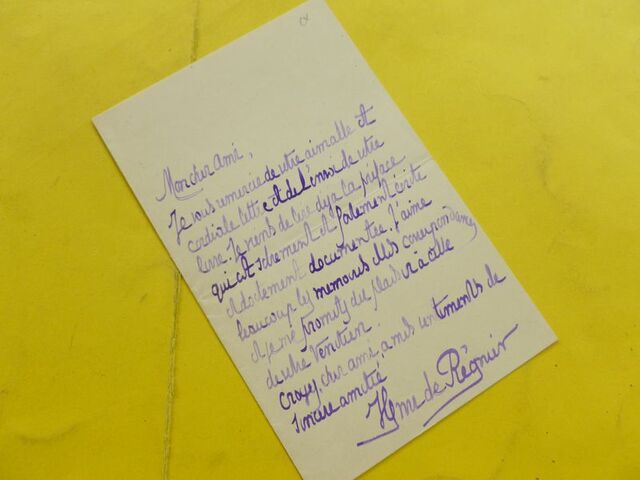 Mon cher Ami,
Je vous remercie de votre aimable et
cordiale lettre et de l'envoi de votre
livre. Je viens de lire déjà la préface
qui est sobrement et fortement écrite
et doctement documentée. J'aime
beaucoup les mémoires et les correspondances
et je me promets du plaisir à celle
de votre Vénitien.
Croyez, cher ami, à mes sentiments de
sincère amitié
H de Régnier